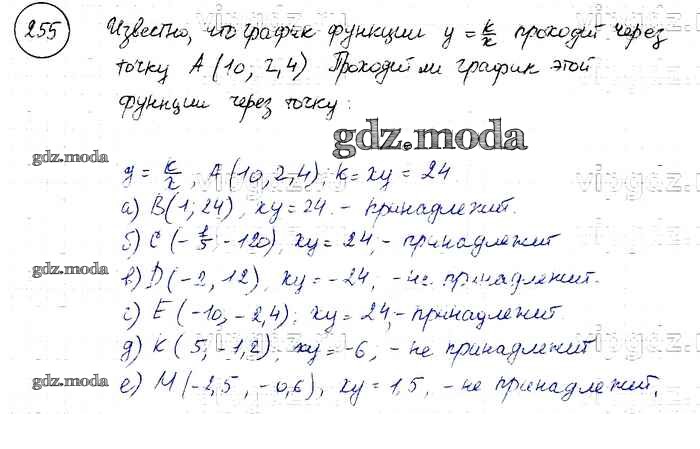 255 Известно, что график функции y = k/x проходит через
точку A (10; 2,4) Проходит ли график этой
функции через точку:
gdz.moda
y = k/x; A(10; 2,4); k = xy = 24
а) B(1; 24), xy = 24 - принадлежит.
б) C(-1/5; -120), xy = 24, - принадлежит
в) D(-2, 12), xy = -24, - не принадлежит.
с) E(-10, -2,4); xy = 24, - принадлежит.
д) K(5, -1,2), xy = -6, - не принадлежит
е) M(-2,5, -0,6), xy = 1,5, - не принадлежит.
gdz.moda
gdz.moda
gdz.moda